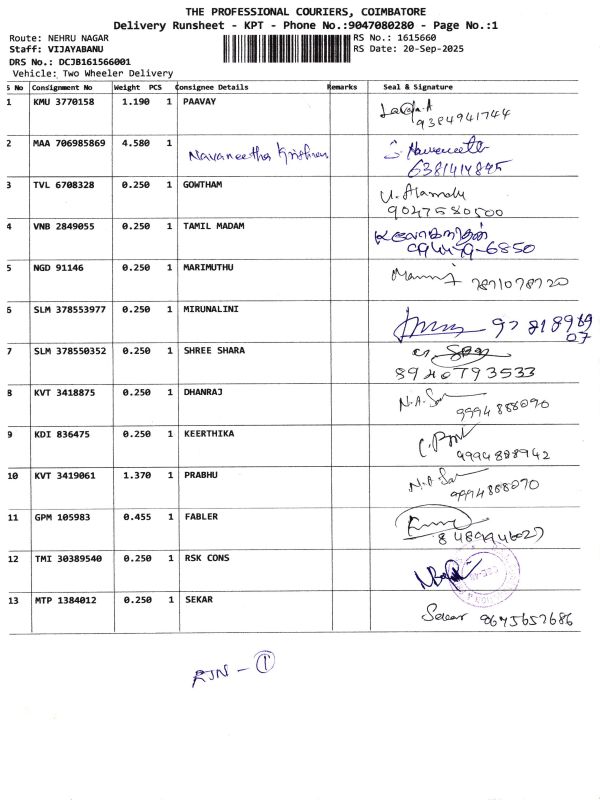 THE PROFESSIONAL COURIERS, COIMBATORE
Delivery Runsheet - KPT - Phone No.:9047080280 - Page No.:1
Route: NEHRU NAGAR RS No.: 1615660
Staff: VIJAYABANU RS Date: 20-Sep-2025
DRS No.: DCJB161566001
Vehicle: Two Wheeler Delivery
S No Consignment No Weight PCS Consignee Details Remarks Seal & Signature
1 KMU 3770158 1.190 1 PAAVAY
9384941744
2 MAA 706985869 4.580 1
Navaneetha Krishnan
6381414845
3 TVL 6708328 0.250 1 GOWTHAM
9047580500
4 VNB 2849055 0.250 1 TAMIL MADAM
5 NGD 91146 0.250 1 MARIMUTHU
7871078720
6 SLM 378553977 0.250 1 MIRUNALINI
7 SLM 378550352 0.250 1 SHREE SHARA
8940793533
8 KVT 3418875 0.250 1 DHANRAJ
9994888070
9 KDI 836475 0.250 1 KEERTHIKA
9994888942
10 KVT 3419061 1.370 1 PRABHU
9994888070
11 GPM 105983 0.455 1 FABLER
8489946027
12 TMI 30389540 0.250 1 RSK CONS
13 MTP 1384012 0.250 1 SEKAR
Sekar 9675657686
RTN - 1